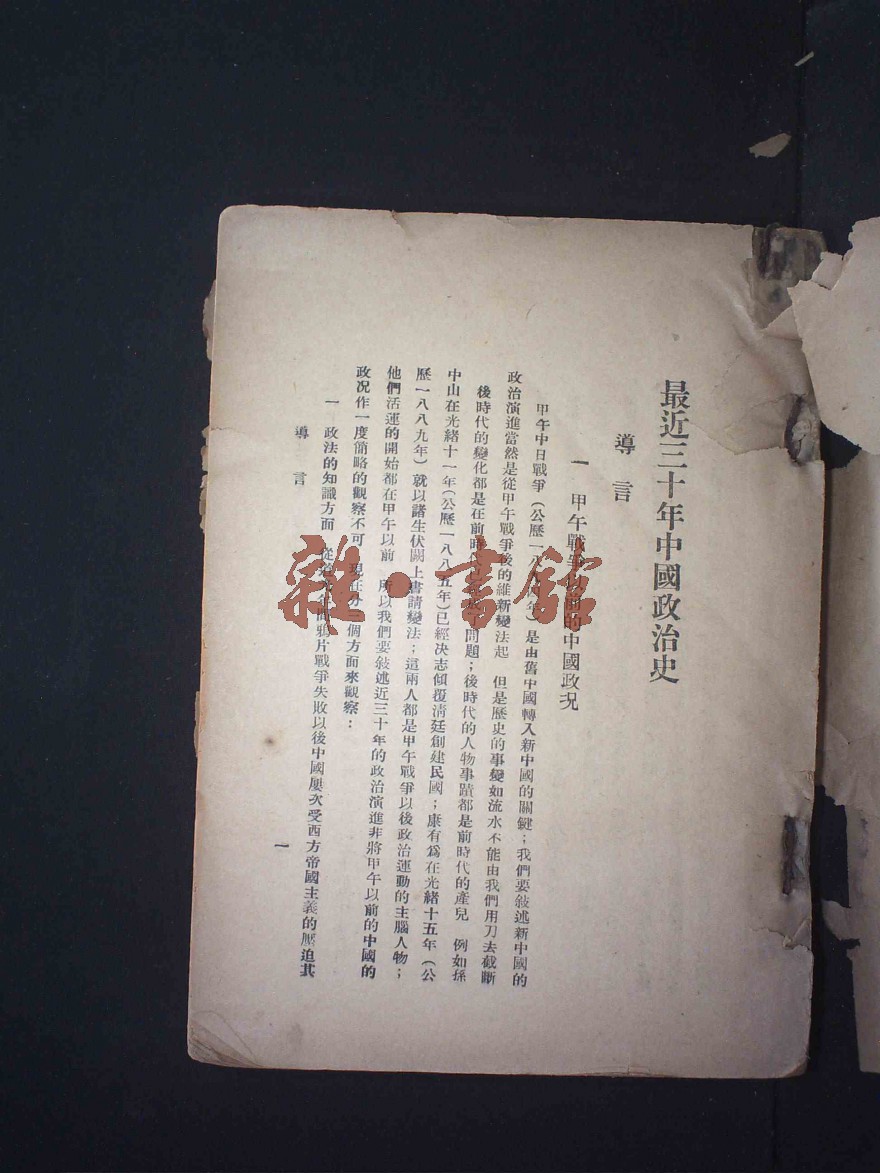 最近三十年中國政治史
導言
一 甲午戰爭以前的中國政況
甲午中日戰爭(公歷一八 年)是由舊中國轉入新中國的關鍵;我們要敍述新中國的
政治演進當然是從甲午戰爭後的維新變法起 但是歷史的事變如流水不能由我們用刀去截斷
後時代的變化都是在前時 問題;後時代的人物事蹟都是前時代的產兒 例如孫
中山在光緒十一年(公歷一八八五年)已經决志傾覆清廷創建民國;康有爲在光緒十五年(公
歷一八八九年)就以諸生伏闕上書請變法;這兩人都是甲午戰爭以後政治運動的主腦人物;
他們活運的開始都在甲午以前 所以我們要敍述近三十年的政治演進非將甲午以前的中國的
政况作一度簡略的觀察不可 現在分三個方面來觀察:
一 政法的知識方面 從 鴉片戰爭失敗以後中國屢次受西方帝國主義的壓迫其
導言
一
雜·書館